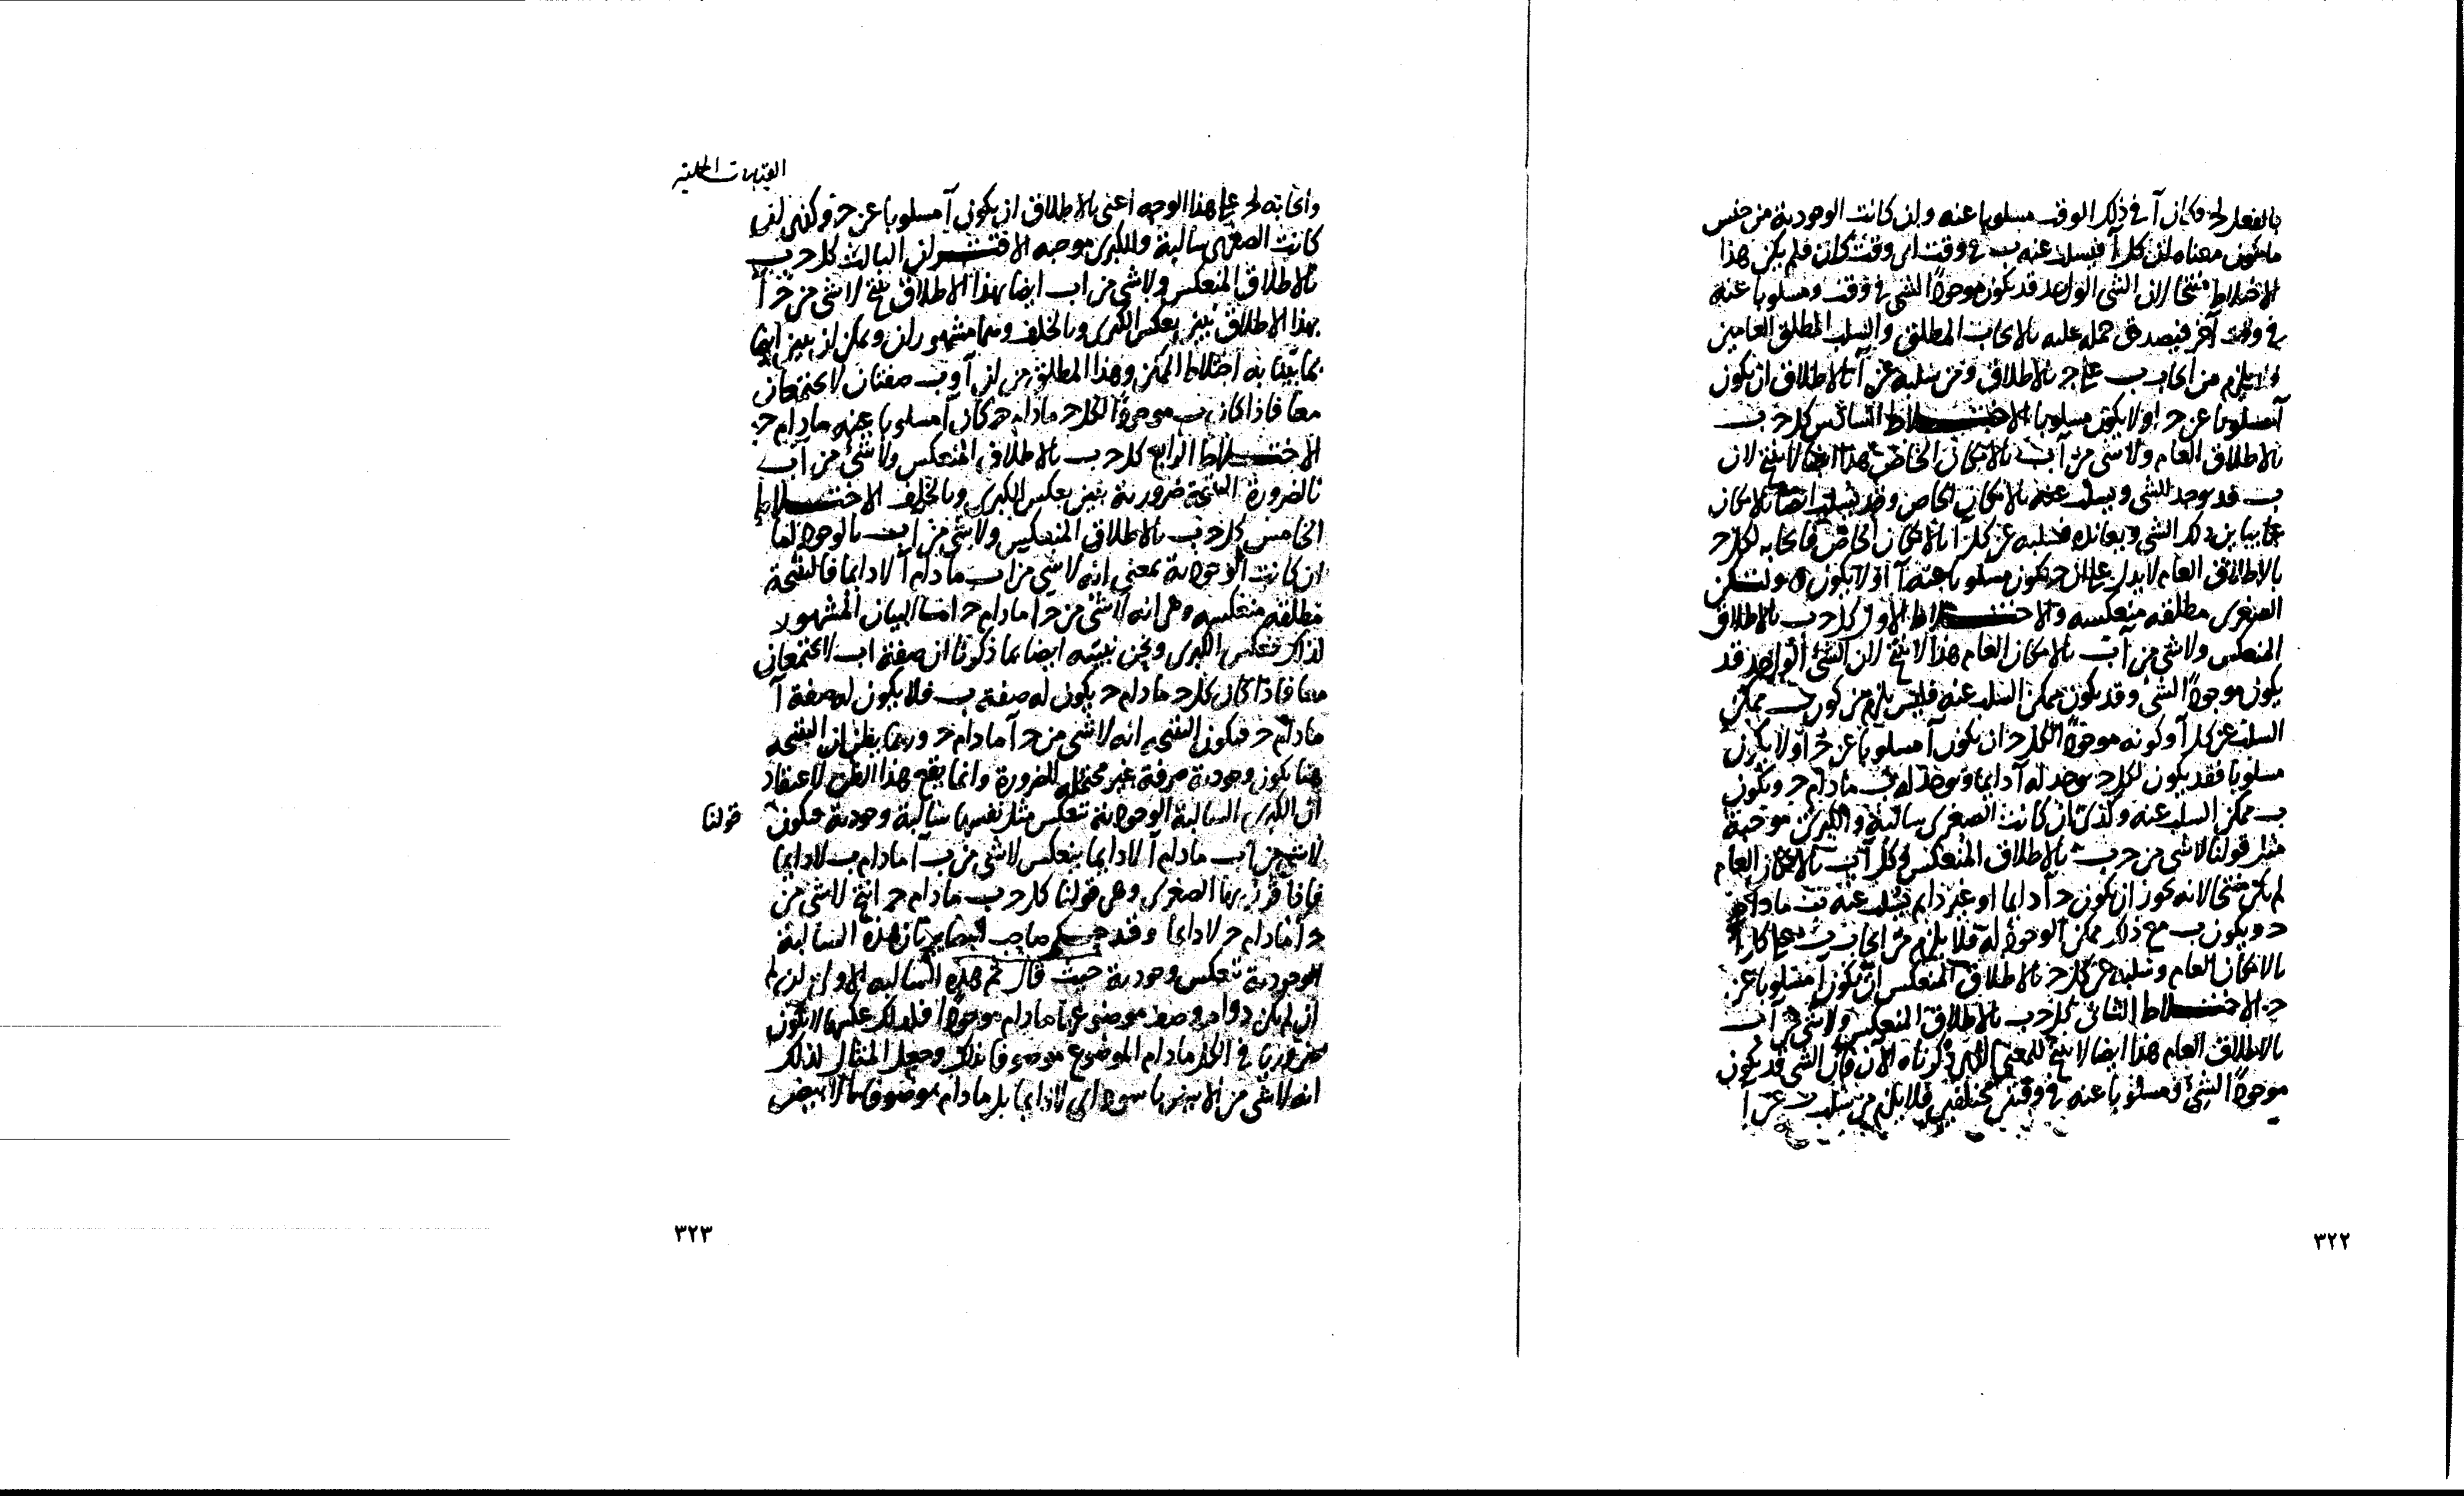 بالفعل لحـ وكان آ في ذلك الوقت مسلوبا عنه وان كانت الوجودية من جنس
ما يكون معناه ان كل آ فيسلب عنه ب في وقت اى وقت كان فلم يكن هذا
الاختلاط منتجا لان الشى الواحد قد يكون موجودًا لشى في وقت ومسلوبا عنه
في وقت آخر فيصدق حمله عليه بالايجاب المطلق والسلب المطلق العامين
ولا يلزم من ايجاب ب على حـ بالاطلاق ومن سلبه عن آ بالاطلاق ان يكون
آ مسلوبا عن حـ او لا يكون مسلوبا الاختلاط السادس كل حـ ب
بالاطلاق العام ولا شى من آ ب بالامكان الخاص هذا ايضا لا ينتج لان
ب قد يوجد للشى ويسلب عنه بالامكان الخاص وقد يسلب ايضا بالامكان
عما يباين ذلك الشى ويعانده فسلبه عن كل آ بالامكان الخاص وايجابه لكل حـ
بالاطلاق العام لا يدل على ان حـ يكون مسلوبا عنه آ او لا يكون ولتكن
الصغرى مطلقه منعكسه والاختلاط الاول كل حـ ب بالاطلاق
المنعكس ولا شى من آ ب بالامكان العام هذا لا ينتج لان الشى الواحد قد
يكون موجودًا لشى وقد يكون ممكن السلب عنه فليس يلزم من كون ب ممكن
السلب عن كل آ وكونه موجودًا لكل حـ ان يكون آ مسلوبا عن حـ او لا يكون
مسلوبا فقد يكون لكل حـ يوجد له آ دايما ويوجد له ب ما دام حـ ويكون
ب ممكن السلب عنه وكذى ان كانت الصغرى سالبة والكبرى موجبة
مثل قولنا لا شى من حـ ب بالاطلاق المنعكس وكل آ ب بالامكان العام
لم يكن منتجا لانه يجوز ان يكون حـ آ دايما او غير دايم يسلب عنه ب ما دام
حـ ويكون ب مع ذلك ممكن الوجود له فلا يلزم من ايجاب ب على كل آ
بالامكان العام وسلبه عن كل حـ بالاطلاق المنعكس ان يكون آ مسلوبا عن
حـ الاختلاط الثانى كل حـ ب بالاطلاق المنعكس ولا شى من آ ب
بالاطلاق العام هذا ايضا لا ينتج للمعنى الذى ذكرناه الان فان الشى قد يكون
موجودًا لشى ومسلوبا عنه في وقتين مختلفين فلا يلزم من سلب ب عن آ
٣٢٢
القياسات الحملية
وايجابه لحـ على هذا الوجه اعنى بالاطلاق ان يكون آ مسلوبا عن حـ وكذى ان
كانت الصغرى سالبة والكبرى موجبه الاقتران الثالث كل حـ ب
بالاطلاق المنعكس ولا شى من ا ب ايضا بهذا الاطلاق ينتج لا شى من حـ آ
بهذا الاطلاق تبين بعكس الكبرى وبالخلف وهما مشهوران ويمكن ان يبين ايضا
بما بينا به اختلاط الممكن وهذا المطلق من ان آ وب صفتان لا يجتمعان
معا فاذا كان ب موجودًا لكل حـ ما دام حـ كان آ مسلوبا عنه ما دام حـ
الاختلاط الرابع كل حـ ب بالاطلاق المنعكس ولا شى من آ ب
بالضرورة النتيجة ضرورية تبين بعكس الكبرى وبالخلف الاختلاط
الخامس كل حـ ب بالاطلاق المنعكس ولا شى من ا ب بالوجود اما
ان كانت الوجودية بمعنى انه لا شى من ا ب ما دام آ لا دايما فالنتيجة
مطلقة منعكسه وهى انه لا شى من حـ ا ما دام حـ اما البيان المشهور
لذلك فبعكس الكبرى ونحن نبينه ايضا بما ذكرنا ان صفة ا ب لا يجتمعان
معا فاذا كان كل حـ ما دام حـ يكون له صفة ب فلا يكون له صفة آ
ما دام حـ فيكون النتيجه انه لا شى من حـ آ ما دام حـ وربما يظن ان النتيجه
هنا يكون وجودية صرفة غير محتمله للضرورة وانما يقع هذا الظن لاعتقاد
ان الكبرى السالبة الوجودية تنعكس مثل نفسها سالبة وجودية فيكون قولنا
لا شى من ا ب ما دام آ لا دايما ينعكس لا شى من ب آ ما دام ب لا دايما
فاذا قرن بها الصغرى وهى قولنا كل حـ ب ما دام حـ انتج لا شى من
حـ آ ما دام حـ لا دايما وقد حكم صاحب البصاير بان هذه السالبة
الوجودية تنعكس وجودية حيث قال ثم هذه السالبه الاولى ان لم
ان لم يكن دوام وصف موضوعها ما دام موجودًا فلذلك عكسها لا يكون
ضروريا في الكل ما دام الموضوع موصوفا بذلك وجعل المثال لذلك
انه لا شى من الابيض باسود اى لا دايما بل ما دام موصوفا بالابيض
٣٢٣